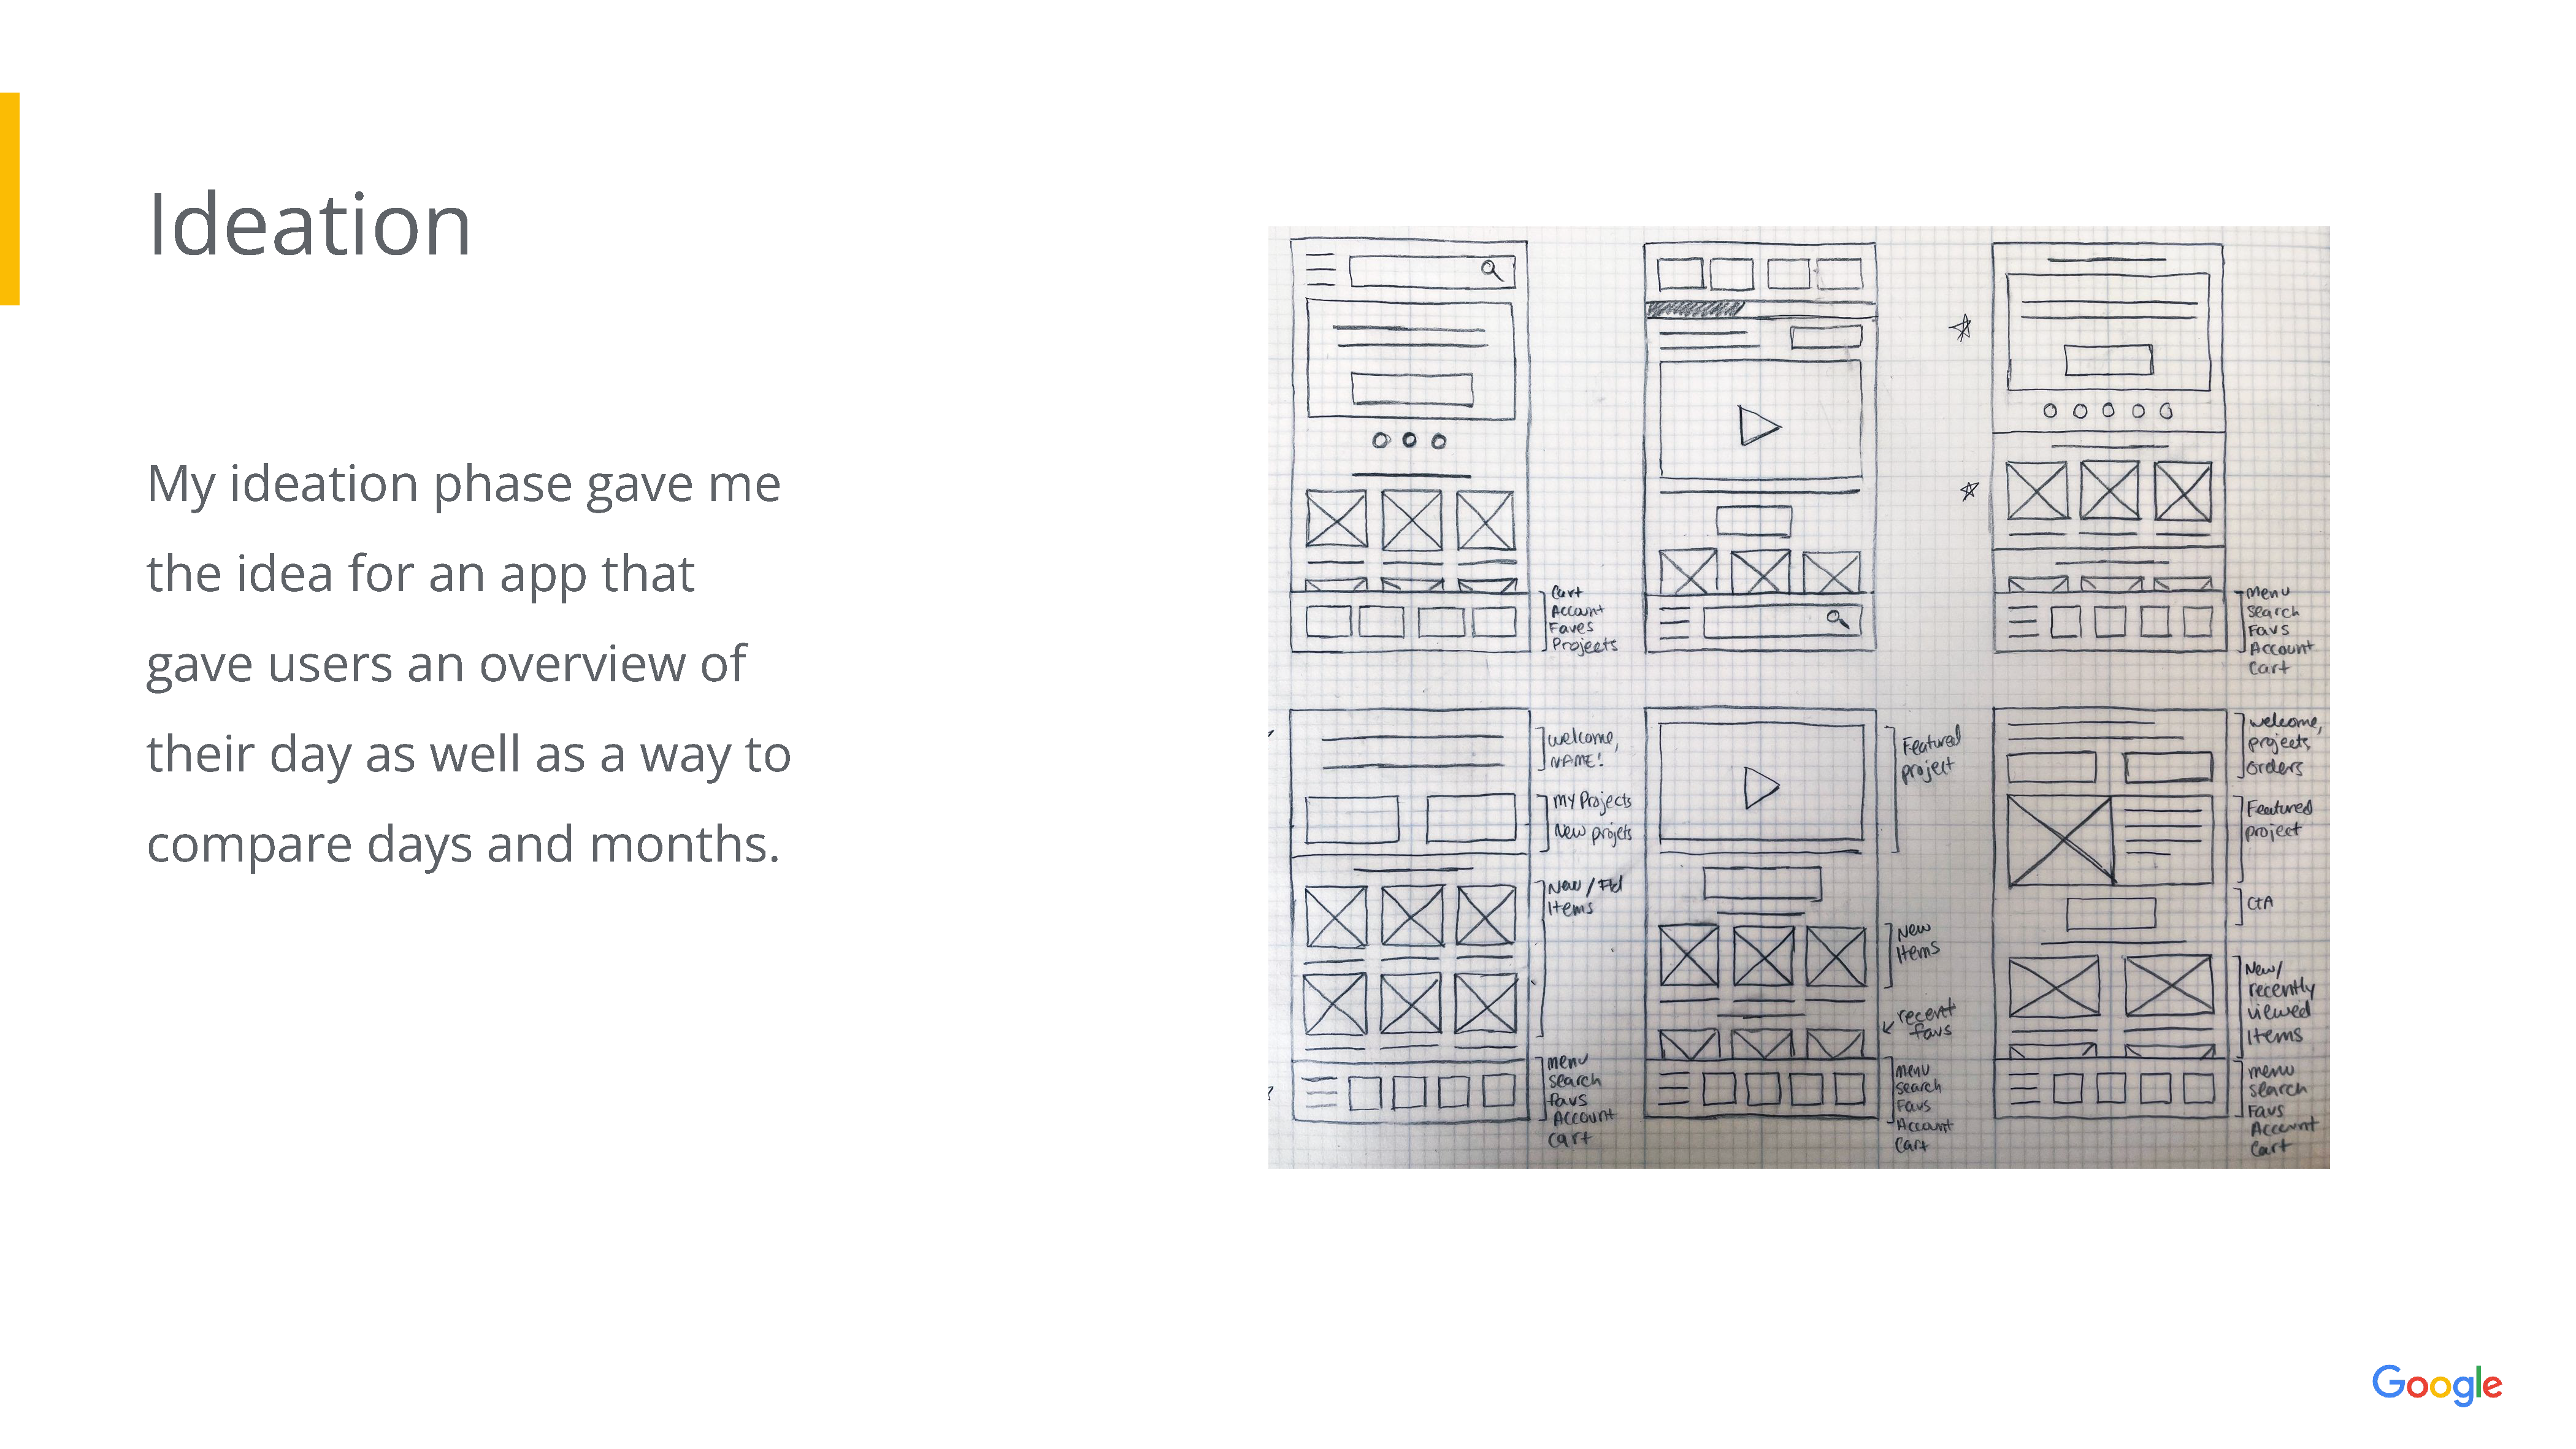 Ideation
My ideation phase gave me
the idea for an app that
gave users an overview of
their day as well as a way to
compare days and months.
Cart
Account
Faves
Projects
menu
Search
Favs
Account
Cart
welcome,
NAME!
My Projects
New projets
New /
Items
menu
search
favs
Account
cart
Featured
project
New
Items
recent
favs
menu
search
Favs
Account
Cart
welcome,
projects,
orders
Featured
project
CtA
New/
recently
viewed
Items
menu
search
Favs
Account
Cart
Google